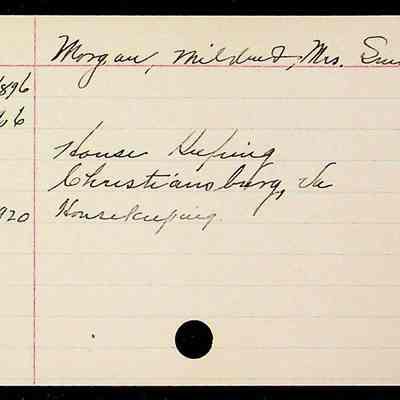 Morgan, Mildred, Mrs.
1896
House Keeping
Christiansburg, Va
1920 Housekeeping.